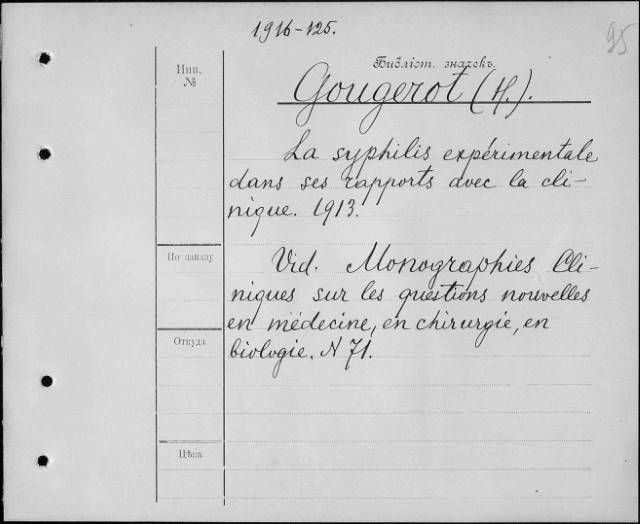 1916-125.
95
Инв.
№
Библіот. значекъ
Gougerot (H.).
La syphilis expérimentale
dans ses rapports avec la cli-
nique. 1913.
По заказу
Vid. Monographies Cli-
niques sur les questions nouvelles
en médecine, en chirurgie, en
Откуда
biologie. N 71.
Цѣна